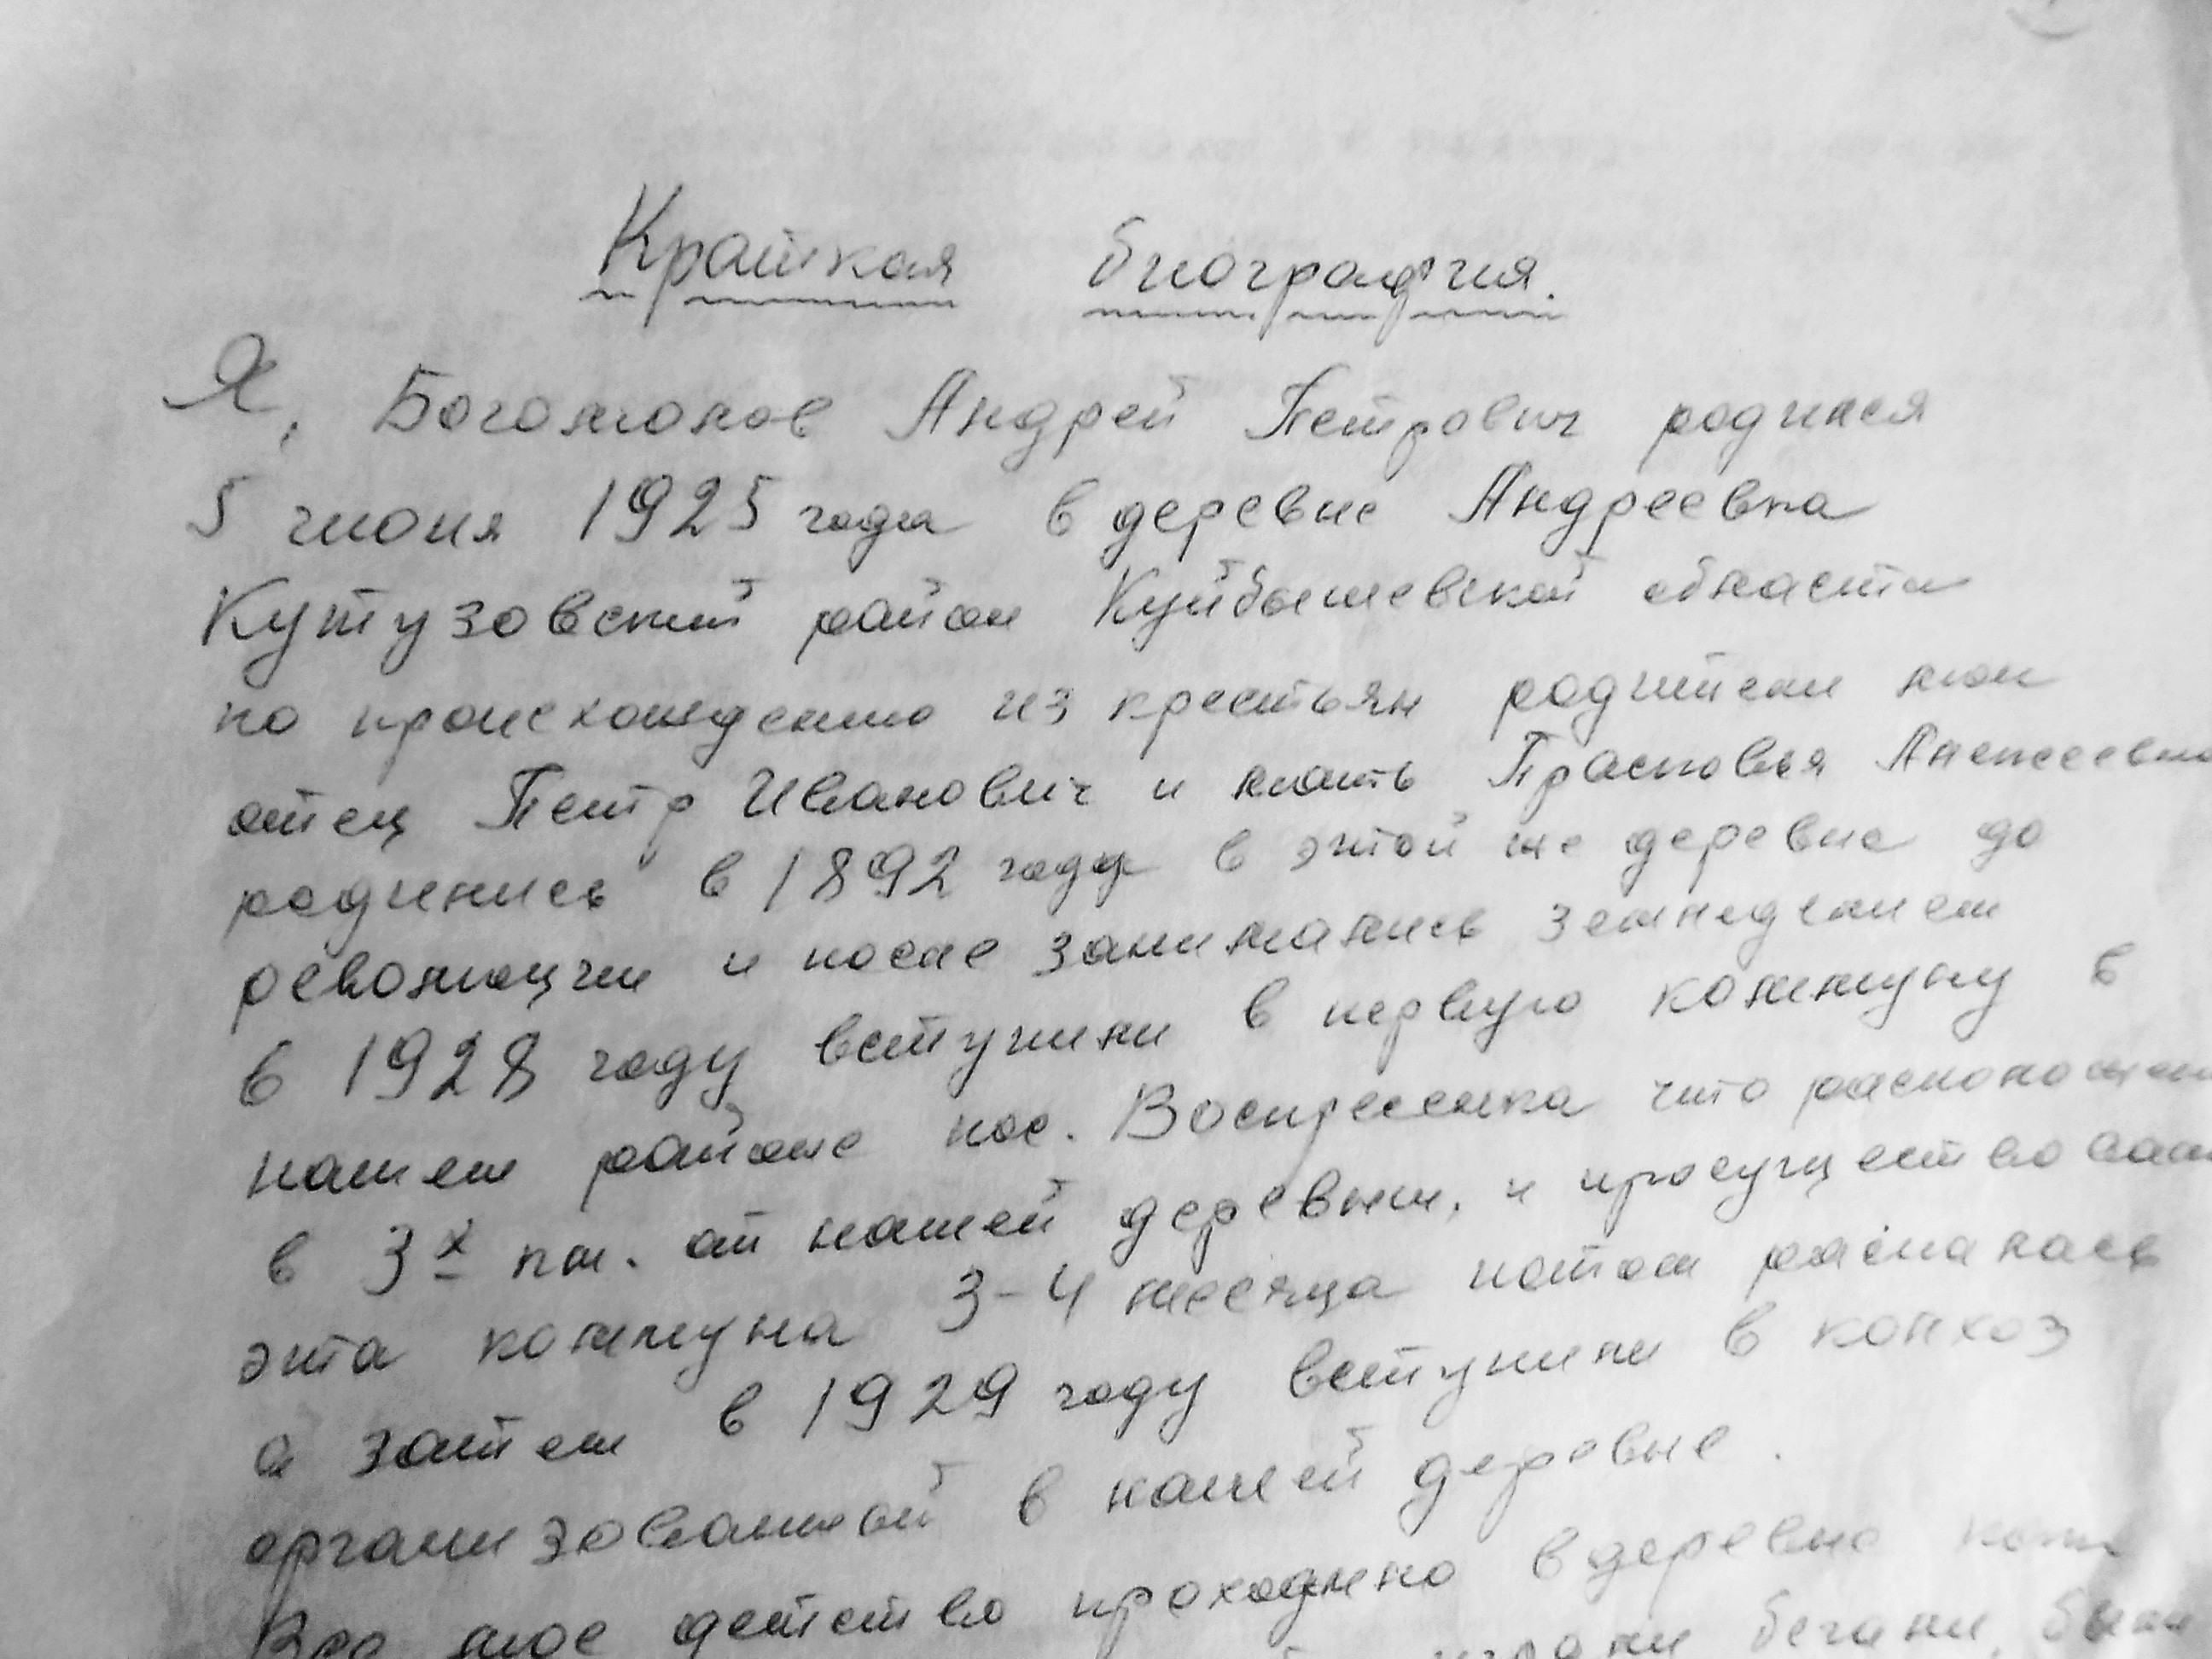 Краткая биография.
Я, Богомолов Андрей Петрович родился
5 июня 1925 года в деревне Андреевка
Кутузовский район Куйбышевской области
по происхождению из крестьян родители мои
отец Петр Иванович и мать Прасковья Алексеевна
родились в 1892 году в этой же деревне до
революции и после занимались земледелием
в 1928 году вступили в первую коммуну в
нашем районе пос. Воскресенка что расположен
в 3х км. от нашей деревни, и просуществовала
эта коммуна 3-4 месяца потом распалась
а затем в 1929 году вступили в колхоз
организованный в нашей деревне.
Все мое детство проходило в деревне
играли бегали, были